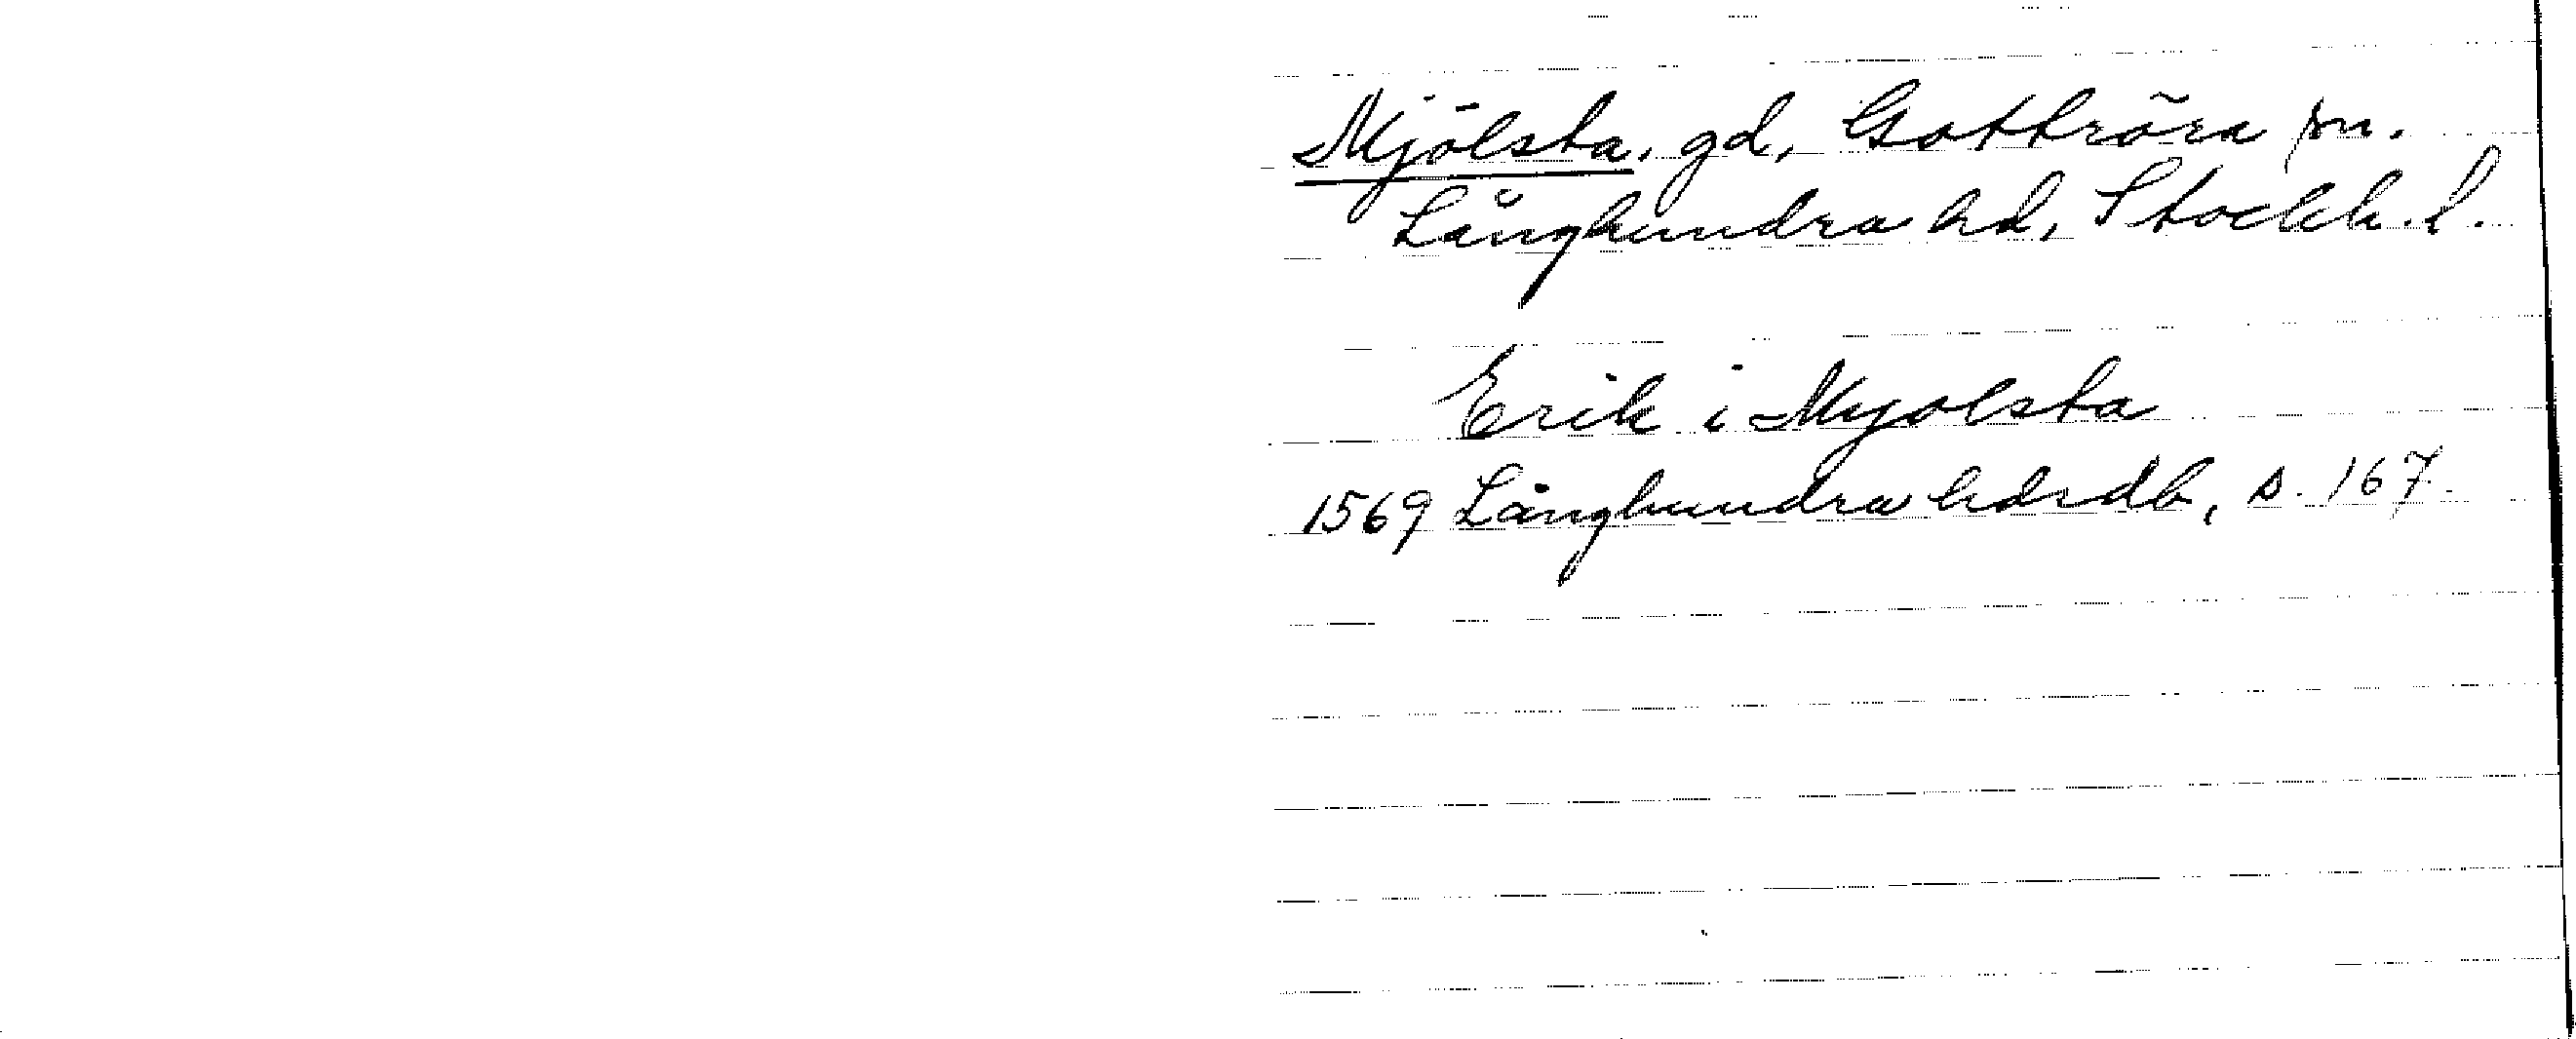 Mjölsta, gd, Gottröra sn.
Långhundra hd, Stockh. l.
Erik i Myolsta
1569 Långhundra hdrdb, s. 167.